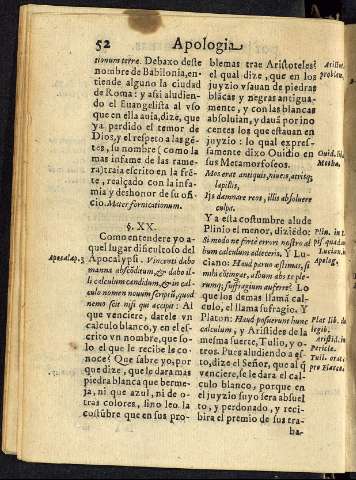 52 Apologia
tionum terre. Debaxo deste
nombre de Babilonia, en-
tiende alguno la ciudad
de Roma: y assi aludien-
do el Euangelista al vso
que en ella auia, dize, que
ya perdido el temor de
Dios, y el respeto a las gē-
tes, su nombre (como la
mas infame de las rame-
ra) traia escrito en la frē-
te, realçado con la infa-
mia y deshonor de su ofi-
cio. Mater fornicationum.
§. XX.
Como entendere yo a-
quel lugar dificultoso del
Apocalypsi. Vincenti dabo
manna absconditum, & dabo il-
li calculum candidum, & in cal-
culo nomen nouum scriptū, quod
nemo scit nisi qui accipit: Al
que venciere, darele vn
calculo blanco, y en el es-
crito vn nombre, que so-
lo el que le recibe le co-
noce? Que sabre yo, por
que dize, que le dara mas
piedra blanca que berme-
ja, ni que azul, ni de o-
tras colores, sino leo la
costūbre que en sus pro-
Apocalap. 3
blemas trae Aristoteles?
el qual dize, que en los
juyzio vsauan de piedras
blācas y negras antigua-
mente, y con las blancas
absoluian, y dauā por ino
centes los que estauan en
juyzio: lo qual expres-
samente dixo Ouidio en
sus Metamorfoseos.
Mos erat antiquis, niueis, atrisq;
lapillis,
Ijs damnare reos, illis absoluere
culpa.
Y a esta costumbre alude
Plinio el menor, diziēdo:
Si modo ne forte errori nostro al
bum calculum adieceris. Y Lu-
ciano: Haud paruo æstimas, si
mihi cōtingat, album abs te ple-
rumq; suffragium auferre? Lo
que los demas llamā cal-
culo, el llama sufragio. Y
Platon: Haud posuerunt hunc
calculum, y Aristides de la
mesma suerte, Tulio, y o-
tros. Pues aludiendo a es-
to, dize el Señor, que al q̄
venciere, se le dara el cal-
culo blanco, porque en
el juyzio suyo sera absuel
to, y perdonado, y reci-
bira el premio de sus tra-
ba-
Aristot.
problem.
Ouid. lib.
Metha.
Plin. in
pis quadam
Lucian.
Apolog.
Plat lib. de
legib.
Aristid. in
Pericle.
Tull. orat.
pro Flacco.